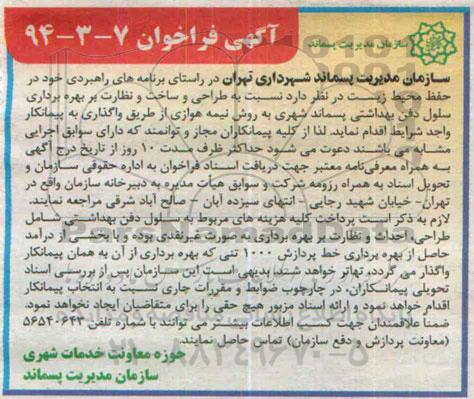 سازمان مدیریت پسماند
آگهی فراخوان ۷-۳-۹۴
سازمان مدیریت پسماند شهرداری تهران در راستای برنامه های راهبردی خود در
حفظ محیط زیست در نظر دارد نسبت به طراحی و ساخت و نظارت بر بهره برداری
سلول دفن بهداشتی پسماند شهری به روش نیمه هوازی از طریق واگذاری به پیمانکار
واجد شرایط اقدام نماید. لذا از کلیه پیمانکاران مجاز و توانمند که دارای سوابق اجرایی
مشابه می باشند دعوت می شود حداکثر ظرف مدت ۱۰ روز از تاریخ درج آگهی
به همراه معرفی‌نامه معتبر جهت دریافت اسناد فراخوان به اداره حقوقی سازمان و
تحویل اسناد به همراه رزومه شرکت و سوابق هیأت مدیره به دبیرخانه سازمان واقع در
تهران- خیابان شهید رجایی - انتهای سیزده آبان - صالح آباد شرقی مراجعه نمایند.
لازم به ذکر است پرداخت کلیه هزینه های مربوط به سلول دفن بهداشتی شامل
طراحی، احداث و نظارت بر بهره برداری به صورت غیرنقدی بوده و یا بخشی از درآمد
حاصل از بهره برداری خط پردازش ۱۰۰۰ تنی که بهره برداری از آن به همان پیمانکار
واگذار می گردد، تهاتر خواهد شد. بدیهی است این سازمان پس از بررسی اسناد
تحویلی پیمانکاران، در چارچوب ضوابط و مقررات جاری نسبت به انتخاب پیمانکار
اقدام خواهد نمود و ارائه اسناد مزبور هیچ حقی را برای متقاضیان ایجاد نخواهد نمود.
ضمناً علاقمندان جهت کسب اطلاعات بیشتر می توانند با شماره تلفن ۵۶۵۴۰۶۴۳
(معاونت پردازش و دفع سازمان) تماس حاصل نمایند.
۰۲۱-۸۸۳۴۹۶۷۰-۵
حوزه معاونت خدمات شهری
سازمان مدیریت پسماند